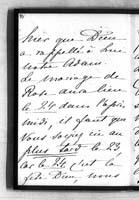 hier que Dieu
a rappellé à Lui
notre Adam.
Le mariage de
Rose aura lieu
le 24 dans l'après
midi, il faut que
vous soyez ici au
plus tard le 23
car le 24 c'est la
fête Dieu, nous